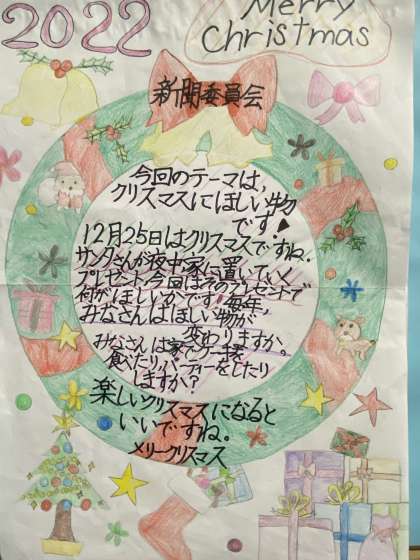 2022
Merry
Christmas
新聞委員会
今回のテーマは、
クリスマスにほしい物
です!
12月25日はクリスマスですね。
サンタさんが夜中家に置いていく
プレゼント今回はそのプレゼントで
何がほしいかです。毎年、
みなさんはほしい物が
変わりますか。
みなさんは家でケーキを
食べたり、パーティーをしたり
しますか?
楽しいクリスマスになると
いいですね。
メリークリスマス